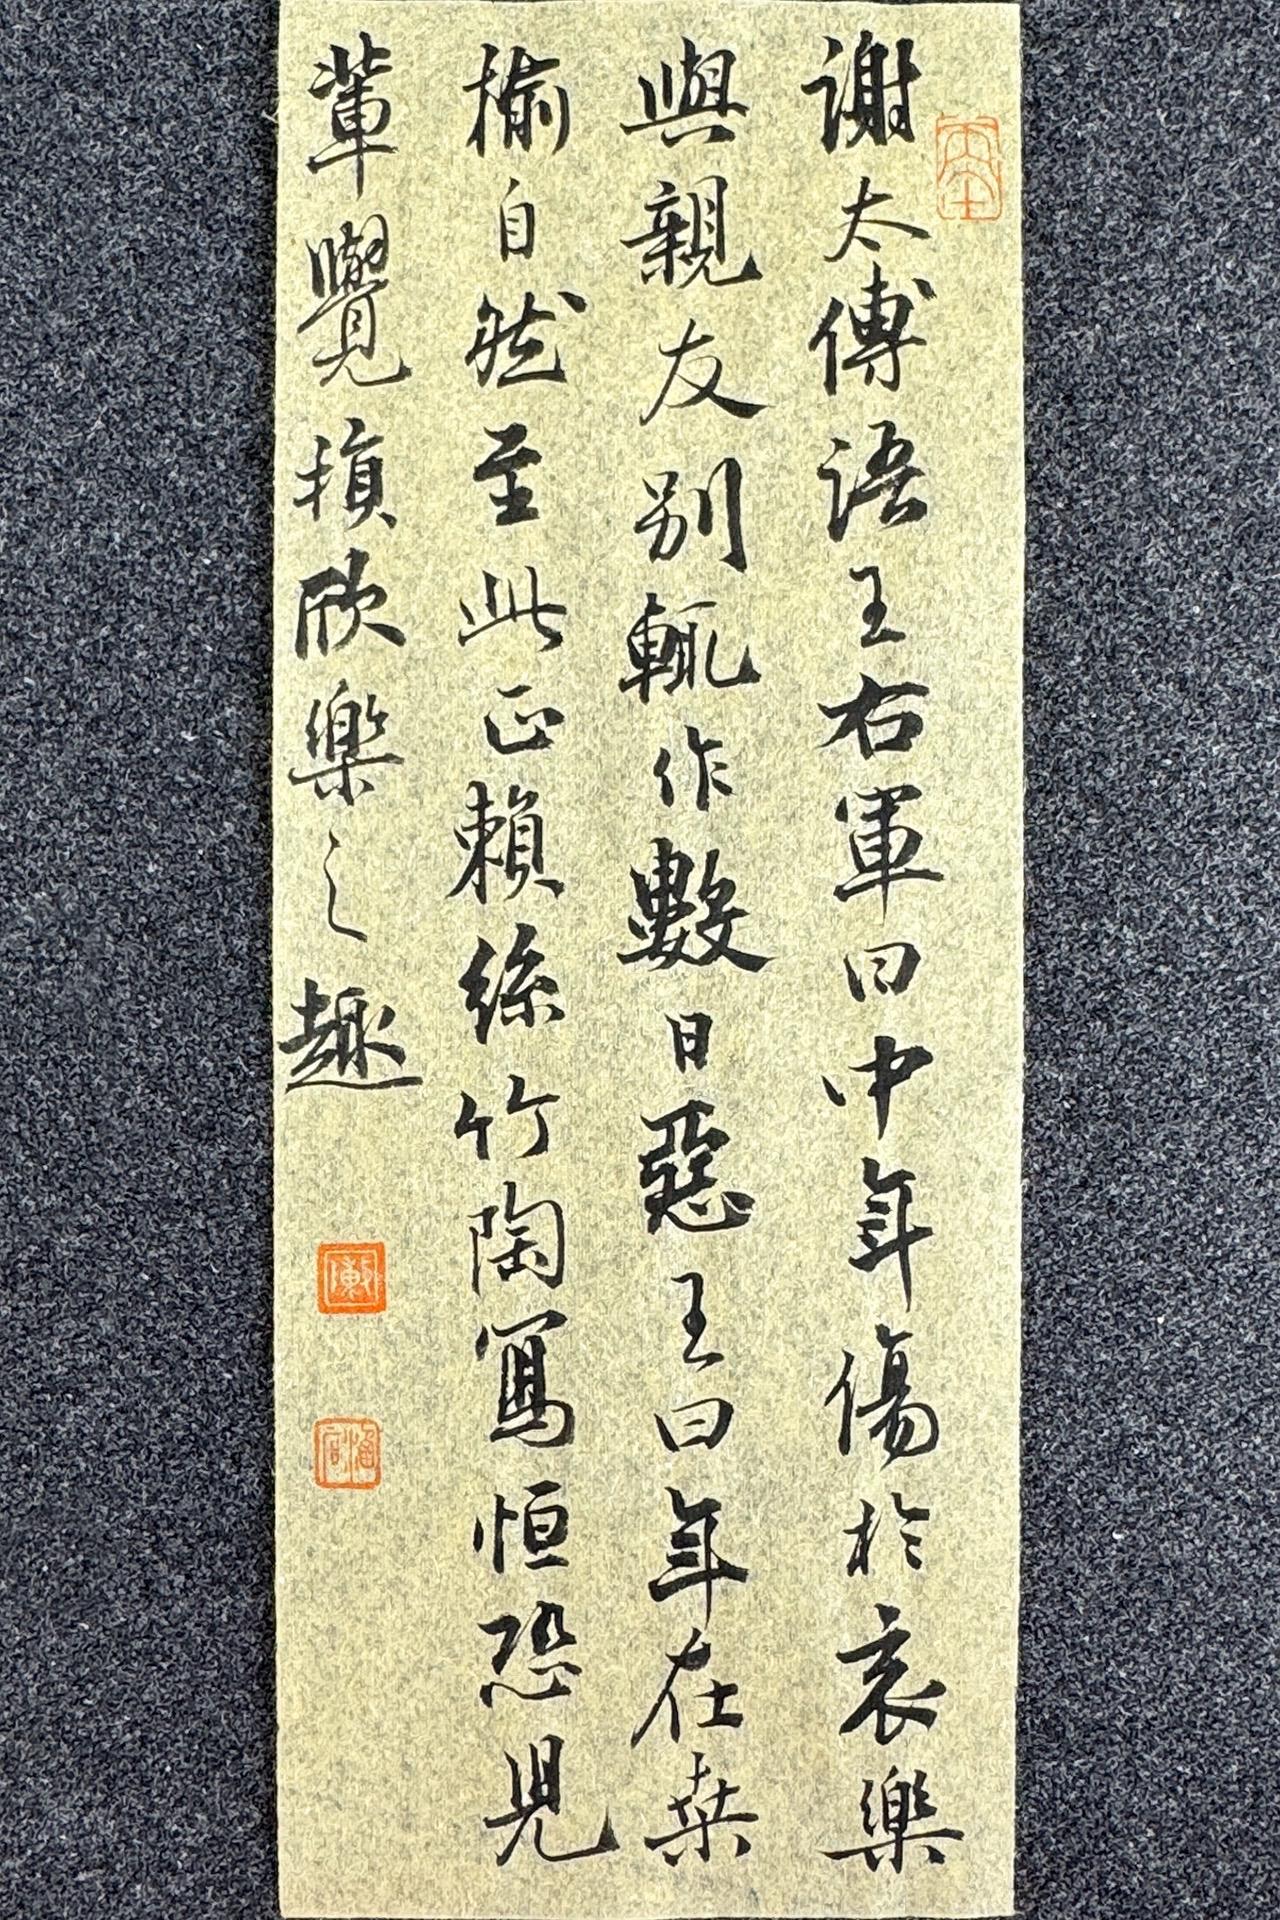 謝太傅語王右軍曰中年傷於哀樂
與親友別輒作數日惡王曰年在桑
榆自然至此正賴絲竹陶寫恒恐兒
輩覺損欣樂之趣